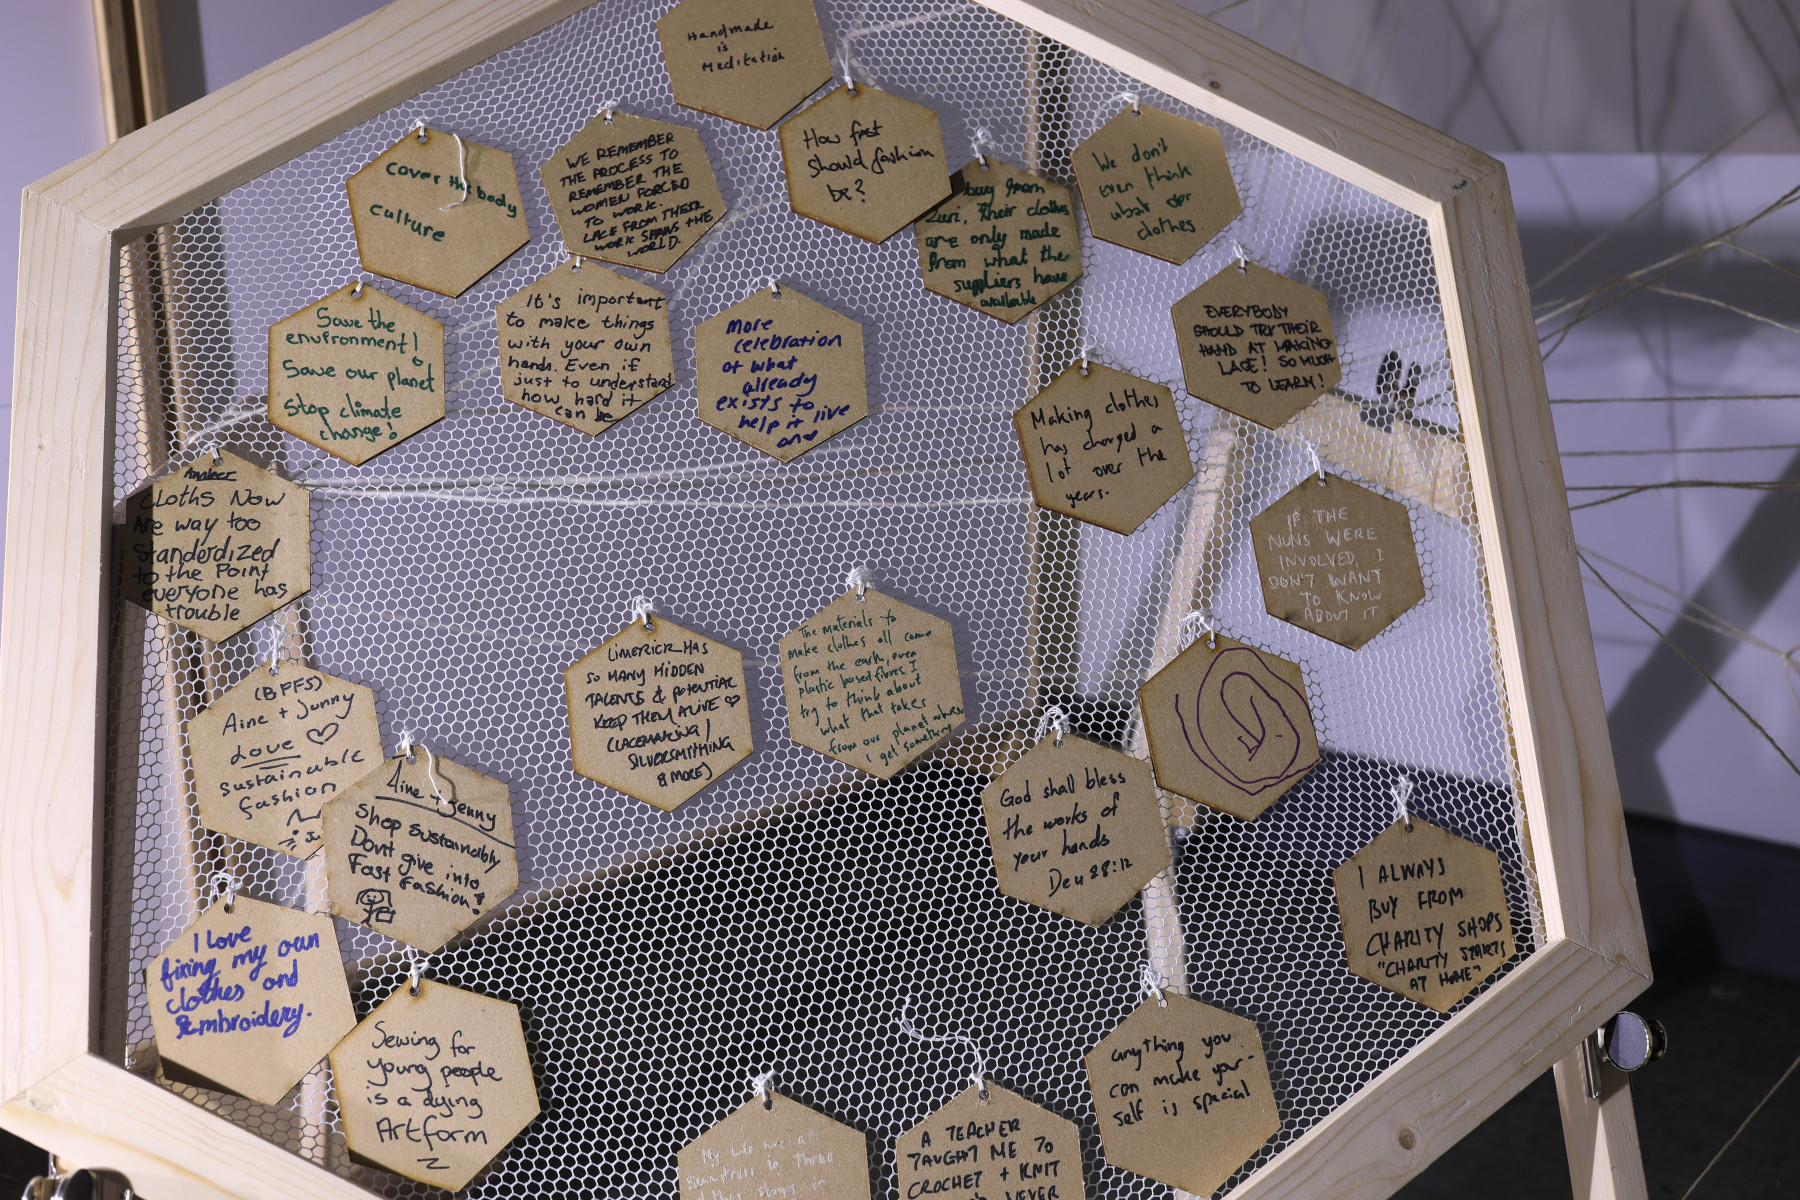 Handmade
is
Meditation
How fast
Should fashion
be?
cover the body
culture
WE REMEMBER
THE PROCESS TO
REMEMBER THE
WOMEN FORCED
TO WORK.
LACE FROM THEIR
WORK SPANS THE
WORLD.
buy from
Their clothes
are only made
from what the
suppliers have
available
We don't
even think
clothes
Save the
environment!
Save our planet
Stop climate
change!
It's important
to make things
with your own
hands. Even if
just to understand
how hard it
can be
More
celebration
of what
already
exists to
help it live
on
EVERYBODY
SHOULD TRY THEIR
HAND AT MAKING
LACE! SO MUCH
TO LEARN!
Making clothes
has changed a
lot over the
years.
CLOTHS NOW
Are way too
Standerdized
to the Point
everyone has
trouble
IF THE
NUNS WERE
INVOLVED, I
DON'T WANT
TO KNOW
ABOUT IT
LIMERICK HAS
SO MANY HIDDEN
TALENTS & POTENTIAL
KEEP THEM ALIVE ♡
(LACEMAKING/
SILVERSMITHING
& MORE)
The materials to
make clothes all come
from the earth, even
plastic based fibres I
try to think about
what that takes
from our planet when
I get something
(BFFS)
Aine + Jenny
Love ♡
sustainable
fashion
Aine + Jenny
Shop sustainably
Dont give into
Fast Fashion!
God shall bless
the works of
your hands
Deu 28:12
I ALWAYS
BUY FROM
CHARITY SHOPS
"CHARITY STARTS
AT HOME"
I Love
fixing my own
clothes and
Embroidery.
Sewing for
young people
is a dying
Artform
anything you
can make your-
self is special
My wife was a
seamstress in three
A TEACHER
TAUGHT ME TO
CROCHET + KNIT
NEVER